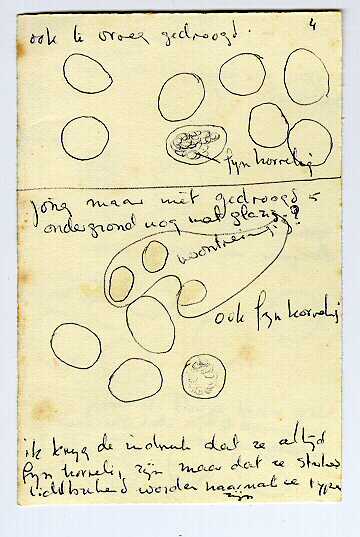 4
ook te vroeg gedroogd.
fyn korrelig
Jong maar niet gedroogd 5
ondergrond nog wat glazig?
ook fyn korrelig
ik kryg de indruk dat ze altyd
fyn korrelig zyn maar dat ze sterker
lichtbrekend worden naarmate ze ryper
zyn